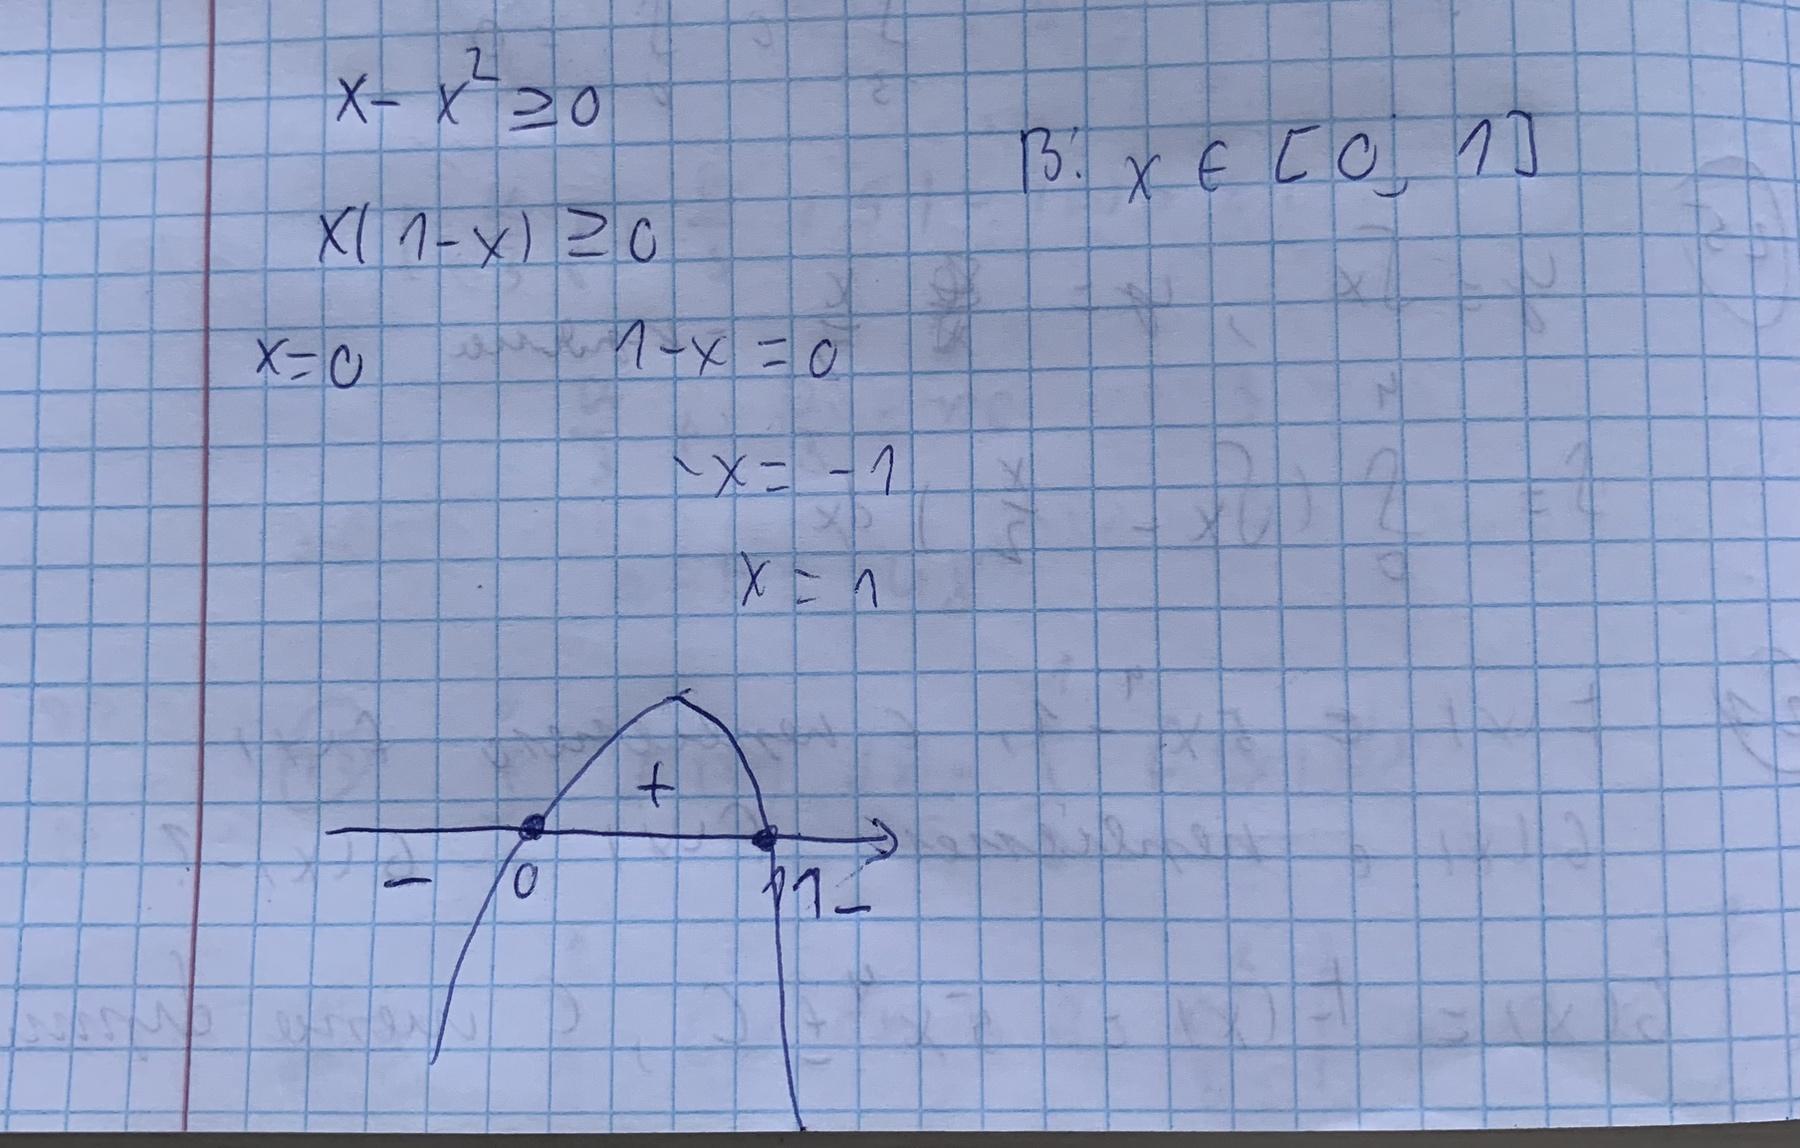 x - x² ≥ 0
В: x ∈ [0; 1]
x(1-x) ≥ 0
x=0 1-x=0
-x = -1
x = 1
+
- 0 1 -